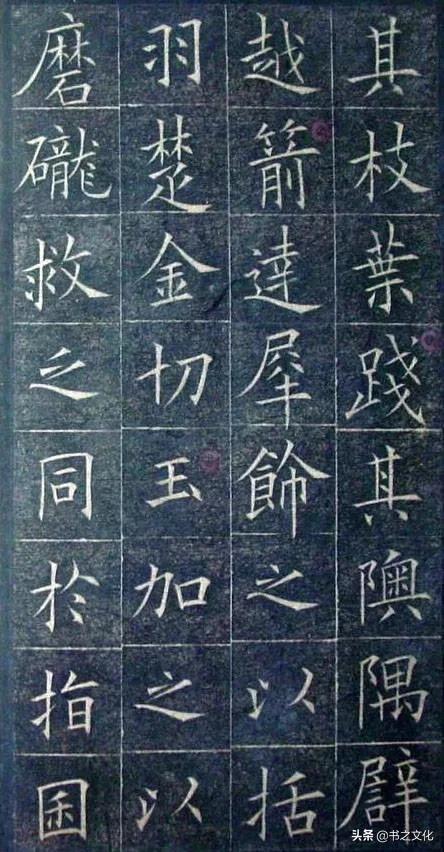 其枝葉踐其隩隅辟
越箭達犀飾之以括
羽楚金切玉加之以
磨礲救之同於指囷
头条 @书之文化